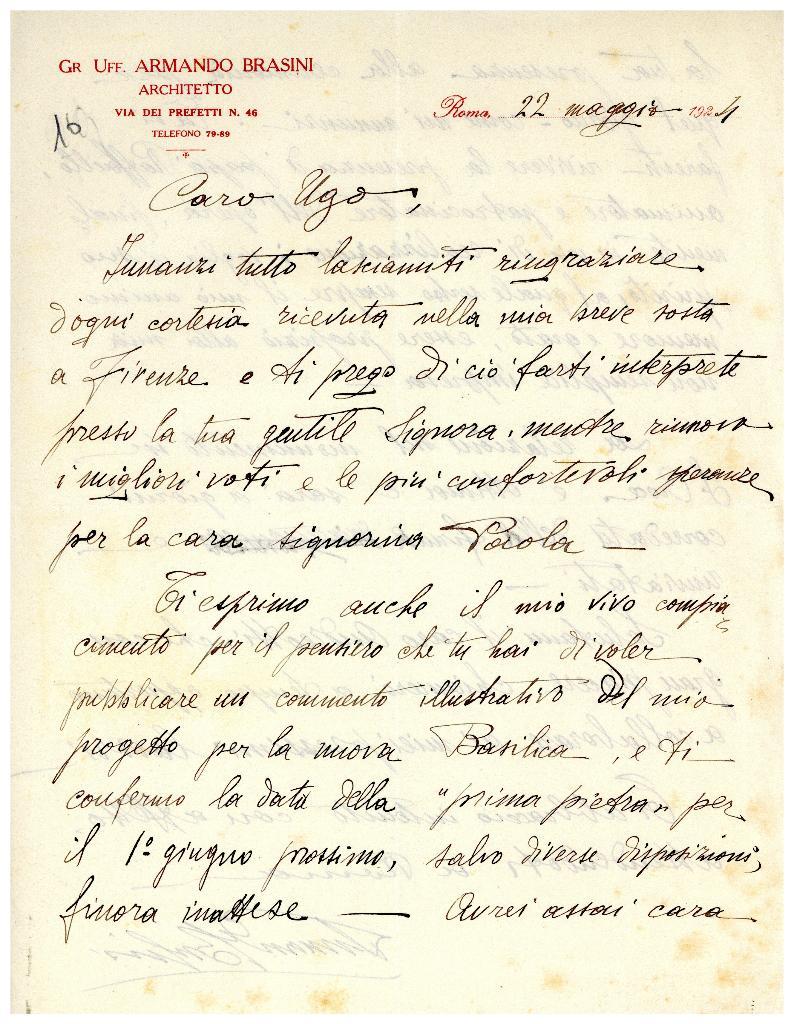 GR UFF. ARMANDO BRASINI
ARCHITETTO
VIA DEI PREFETTI N. 46
TELEFONO 79-89
16
Roma, 22 maggio 1924
Caro Ugo,
Innanzi tutto lasciamiti ringraziare
d'ogni cortesia ricevuta nella mia breve sosta
a Firenze e ti prego di ciò farti interprete
presso la tua gentile Signora, mentre rinnovo
i migliori voti e le più confortevoli speranze
per la cara signorina Paola —
Ti esprimo anche il mio vivo compia=
cimento per il pensiero che tu hai di voler
pubblicare un commento illustrativo del mio
progetto per la nuova Basilica, e ti
confermo la data della "prima pietra" per
il 1º giugno prossimo, salvo diverse disposizioni,
finora inattese — Avrei assai cara